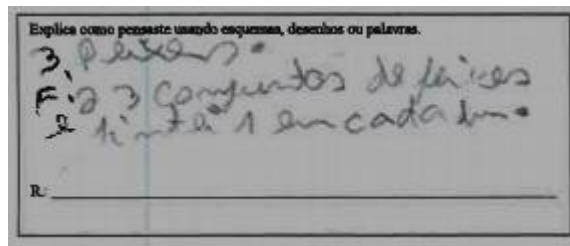 Explica como pensaste usando esquemas, desenhos ou palavras.
3. Peixes.
F. a 3 conjuntos de peixes
e 1 em cada um.
R: